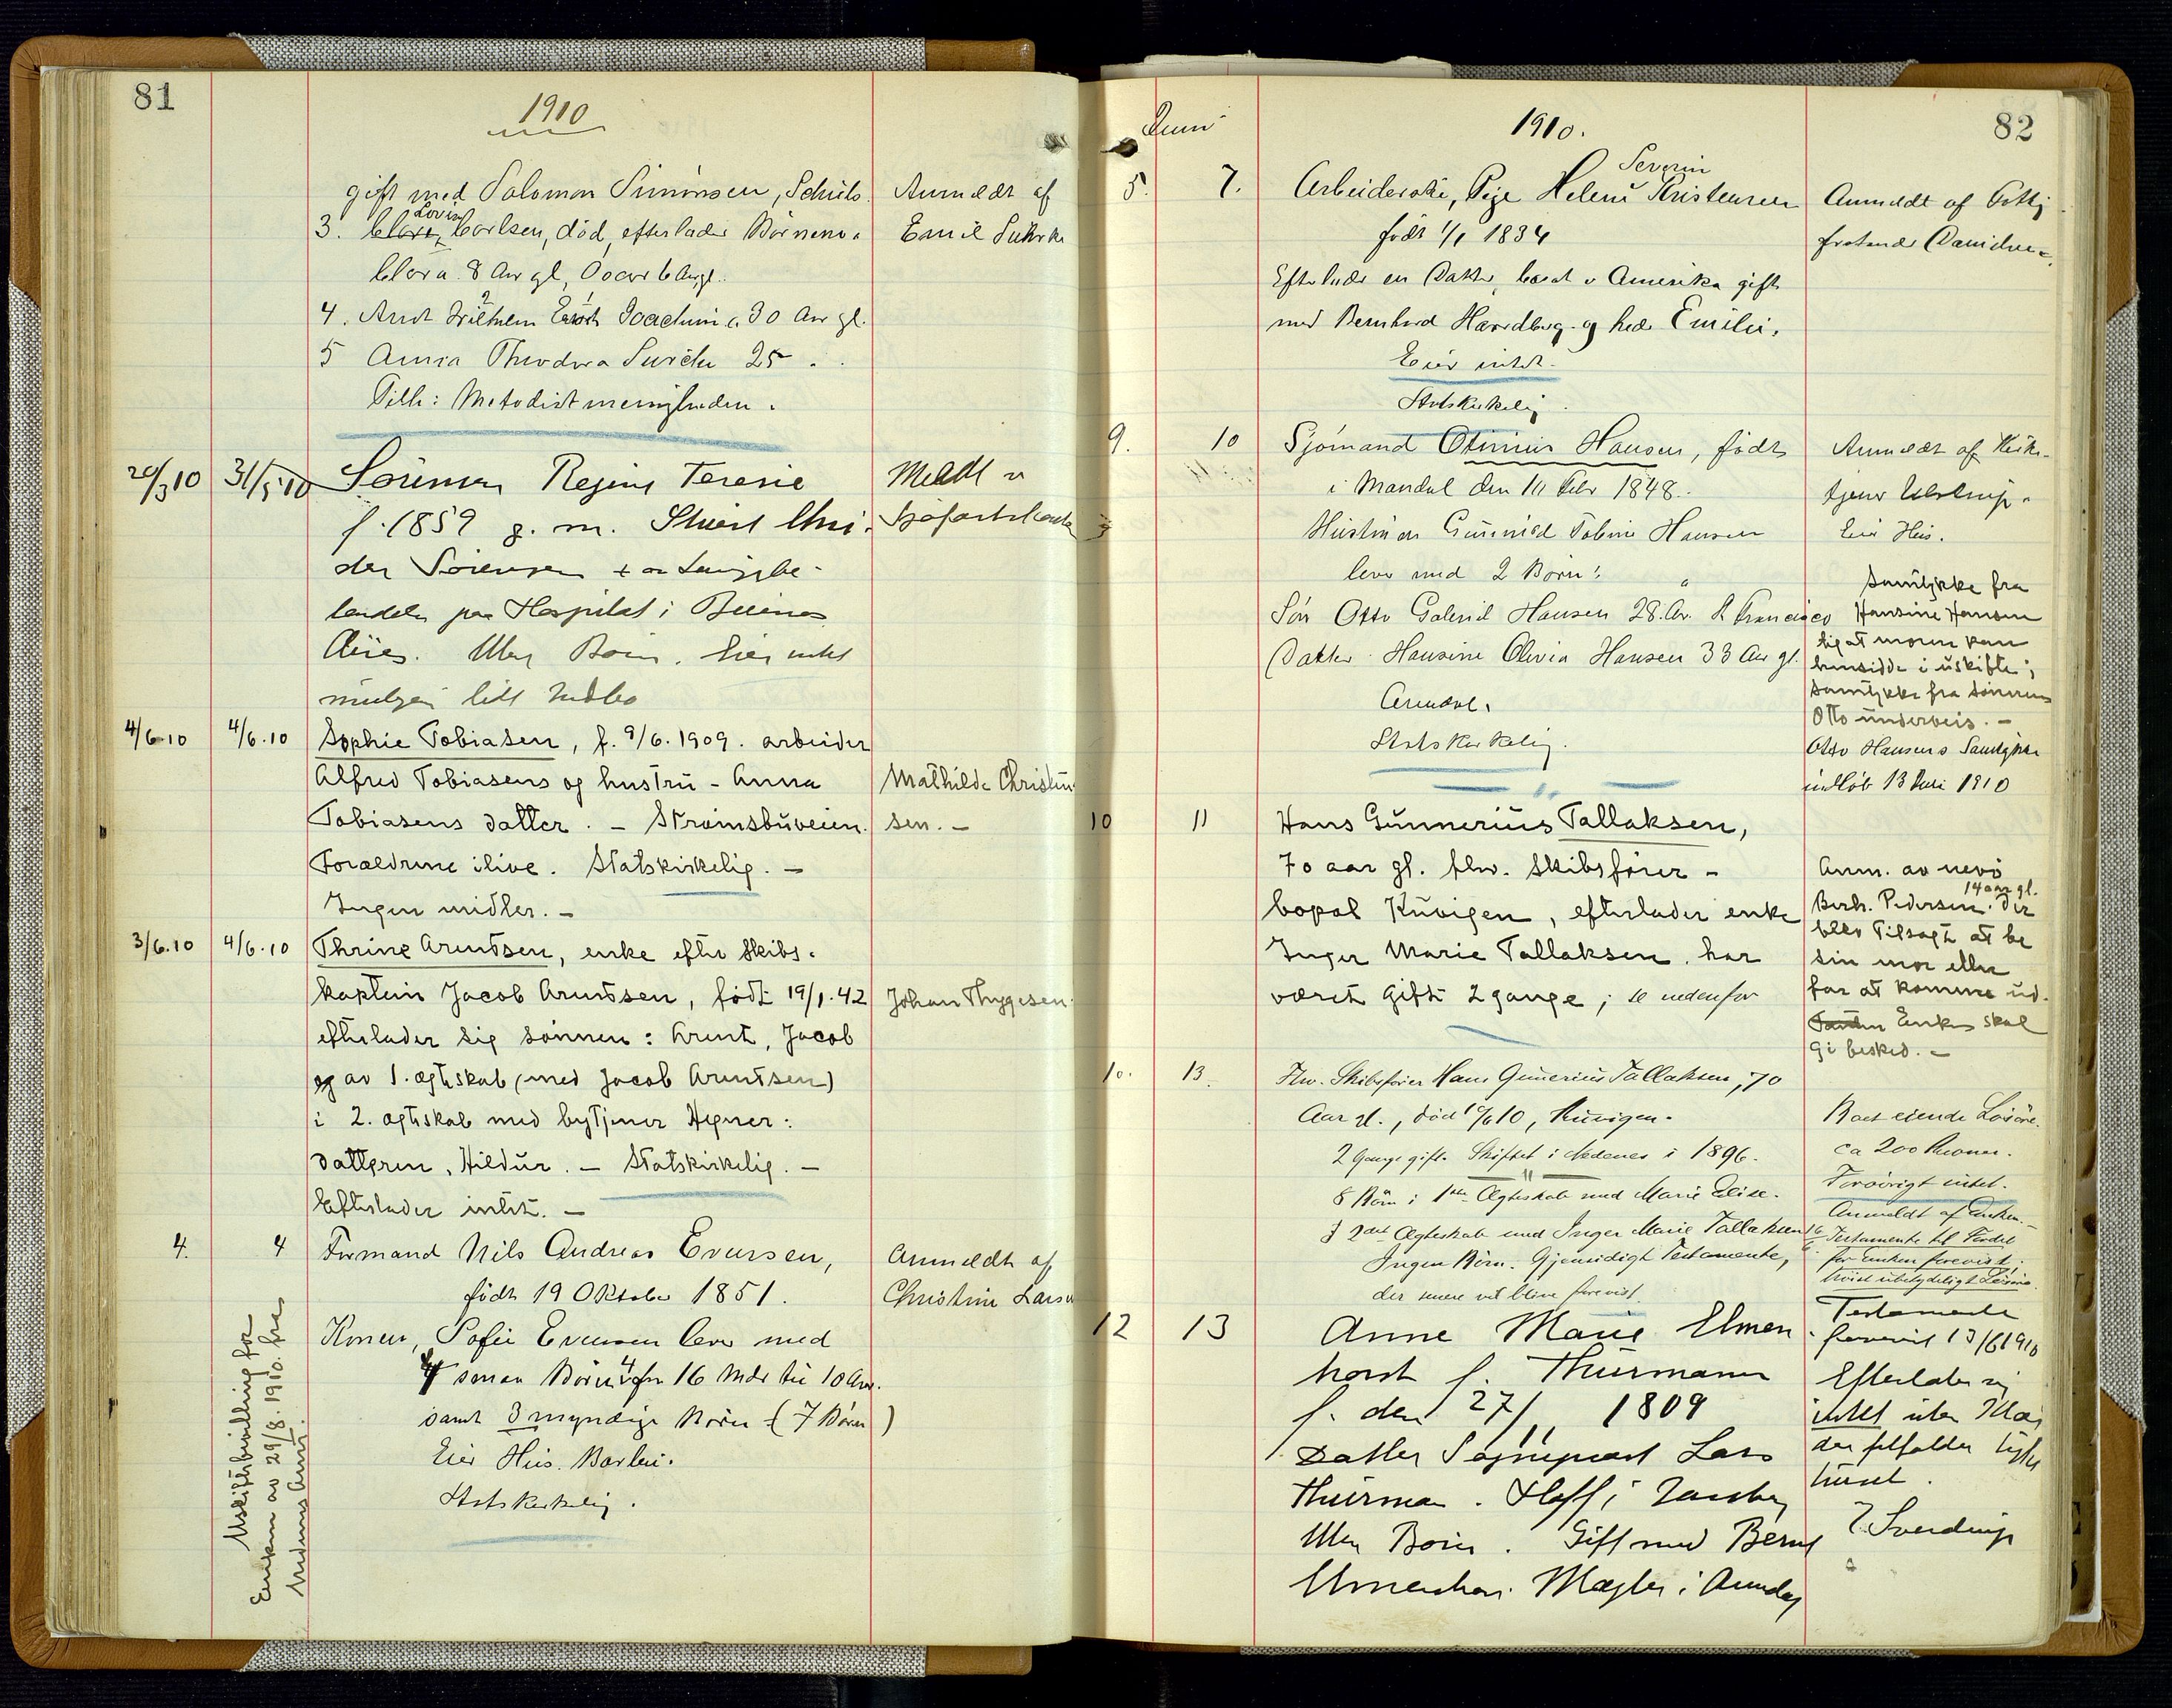 81
1910
gift med Salomon Simonsen, Schiels.
Anmeldt af
3. Lovise Carlsen, død, efterlader Börnene
Emil
Clara 8 Aar gl, Oscar 6 Aar gl.
4. Arnt Wilhelm Joachim c. 30 Aar gl.
5 Anna Theodora 25
Tilh: Metodistmenigheden.
20/3 10 31/5 10 Regine Teresie
Meldt v
f. 1859 g. m.
Sjøfartskont
der Sörensen
paa Hospital i Buenos
Aires. Uten Børn. Eier intet
muligens litt Indbo
4/6 10 4/6.10 Sophie Tobiasen, f. 9/6. 1909. arbeider
Alfred Tobiasens og hustru - Anna
Mathilde Christen-
Tobiasens datter. - Strømsbuveien.
sen. -
Forældrene ilive. Statskirkelig. -
Ingen midler. -
3/6.10 4/6.10 Thrine Arentsen, enke efter Skibs-
kaptein Jacob Arentsen, født 19/1. 42
Johan Thygesen.
efterlader sig sønnen: Arent, Jacob
og av 1. egteskab (med Jacob Arentsen)
i 2. egteskab med bytjener Hegner:
datteren, Hildur. - Statskirkelig. -
Efterlader intet. -
4. 4 Formand Nils Andreas Evensen,
Anmeldt af
født 19 Oktober 1851.
Christine Larsen
Konen, Sofie Evensen lever med
4 smaa Børn fra 16 Mdr til 10 Aar.
samt 3 myndige Børn (7 Børn)
Eier Hus. Barbu.
Statskirkelig.
Uskiftebevilling for
Enken av 29/8. 1910. fra
Nedenes Amt.
82
Juni
1910.
Severin
5. 7. Arbeiderske, Pige Helene Kristensen
Anmeldt af
født 1/1 1834
forstander Danielsen.
Efterlader en Datter, bosat i Amerika gift
med Bernhard og heder Emilie.
Eier intet.
Statskirkelig.
9. 10 Sjømand Otinius Hansen, født
Anmeldt af Kirke-
i Mandal den 10 Febr 1848.
tjener Ulstrup.
Hustruen Gunnild Tobine Hansen
Eier Hus.
lever med 2 Børn:
Samtykke fra
Søn Otto Gabriel Hansen 28. Av. S Francisco
Hansine Hansen
til at moren kan
Datter Hansine Olivia Hansen 33 Aar gl.
hensidde i uskifte;
Samtykke fra sønnen
Arendal.
Otto underveis. -
Statskirkelig.
Otto Hansens Samtykke
indløb 13 Juli 1910
10 11 Hans Gunnerius Tallaksen,
70 aar gl. fhv. Skibsfører -
Anm. av nevø
14 aar gl.
bopæl Kuvigen, efterlader enke
Berh. Pedersen. Der
blev tilsagt at be
Inger Marie Tallaksen. har
sin mor eller
været gift 2 gange; se nedenfor
far at komme ud.
Enken skal
gi besked. -
10. 13. Fhv. Skibsfører Hans Gunerius Tallaksen, 70
Aar gl., død 10/6 10, Kuvigen.
Boet eiende Løsøre.
2 Gange gift. Skiftet i Nedenes i 1896.
ca 200 Kroner.
8 Børn i 1ste Ægteskab med Marie Elise.
Forøvrigt intet.
I 2det Ægteskab med Inger Marie Tallaksen
Anmeldt af Enken. -
Ingen Børn. Gjensidigt Testamente,
Testamente til Fordel
for Enken forevist;
der senere vil blive forevist.
høist ubetydeligt Løsøre.
12 13 Anne Marie Elmen-
Testamente
forevist 13/6 1910
horst f. Thurmann
Efterlater sig
f. den 27/11 1809
intet uten Klæ
Datter Sogneprest Lars
der
Thurman.
huset.
Uten Børn. Gift med Bernt
Sverdrup
Elmenhorst Mægler i Arendal